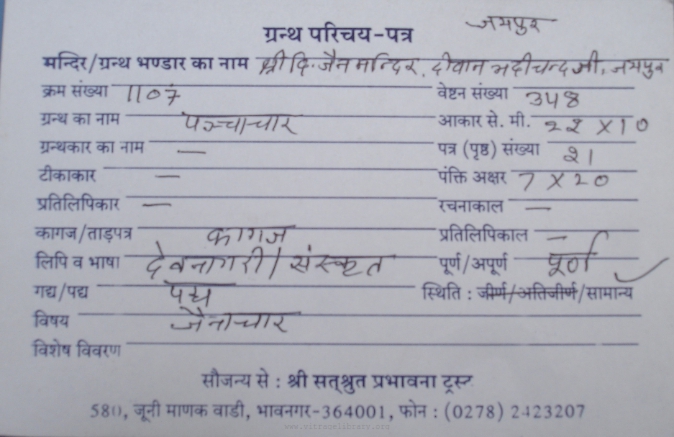 जयपुर
ग्रन्थ परिचय-पत्र
मन्दिर/ग्रन्थ भण्डार का नाम श्री दि. जैन मन्दिर, दीवान भदीचन्दजी, जयपुर
क्रम संख्या 1107 वेष्टन संख्या 348
ग्रन्थ का नाम पञ्चाचार आकार से. मी. 22 X 10
ग्रन्थकार का नाम — पत्र (पृष्ठ) संख्या 21
टीकाकार — पंक्ति अक्षर 7 X 20
प्रतिलिपिकार — रचनाकाल —
कागज/ताड़पत्र कागज प्रतिलिपिकाल —
लिपि व भाषा देवनागरी/संस्कृत पूर्ण/अपूर्ण पूर्ण
गद्य/पद्य पद्य स्थिति : जीर्ण/अतिजीर्ण/सामान्य
विषय जैनाचार
विशेष विवरण
सौजन्य से : श्री सत्श्रुत प्रभावना ट्रस्ट
580, जूनी माणक वाडी, भावनगर-364001, फोन : (0278) 2423207